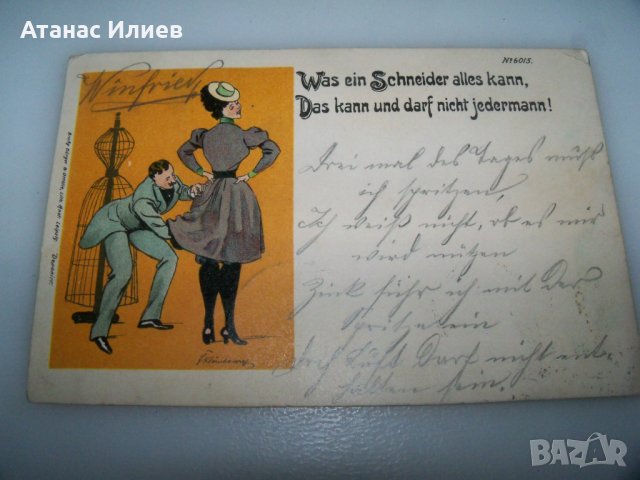 Атанас Илиев
No 6015.
Was ein Schneider alles kann,
Das kann und darf nicht jedermann!
Winfried
Drei mal des Tages muß
ich spritzen,
Ich weiß nicht, ob es mir
wird nützen
Zink führ ich mit der
Spritze ein
doch Luft Darf nicht ent-
halten sein.
BAZAR